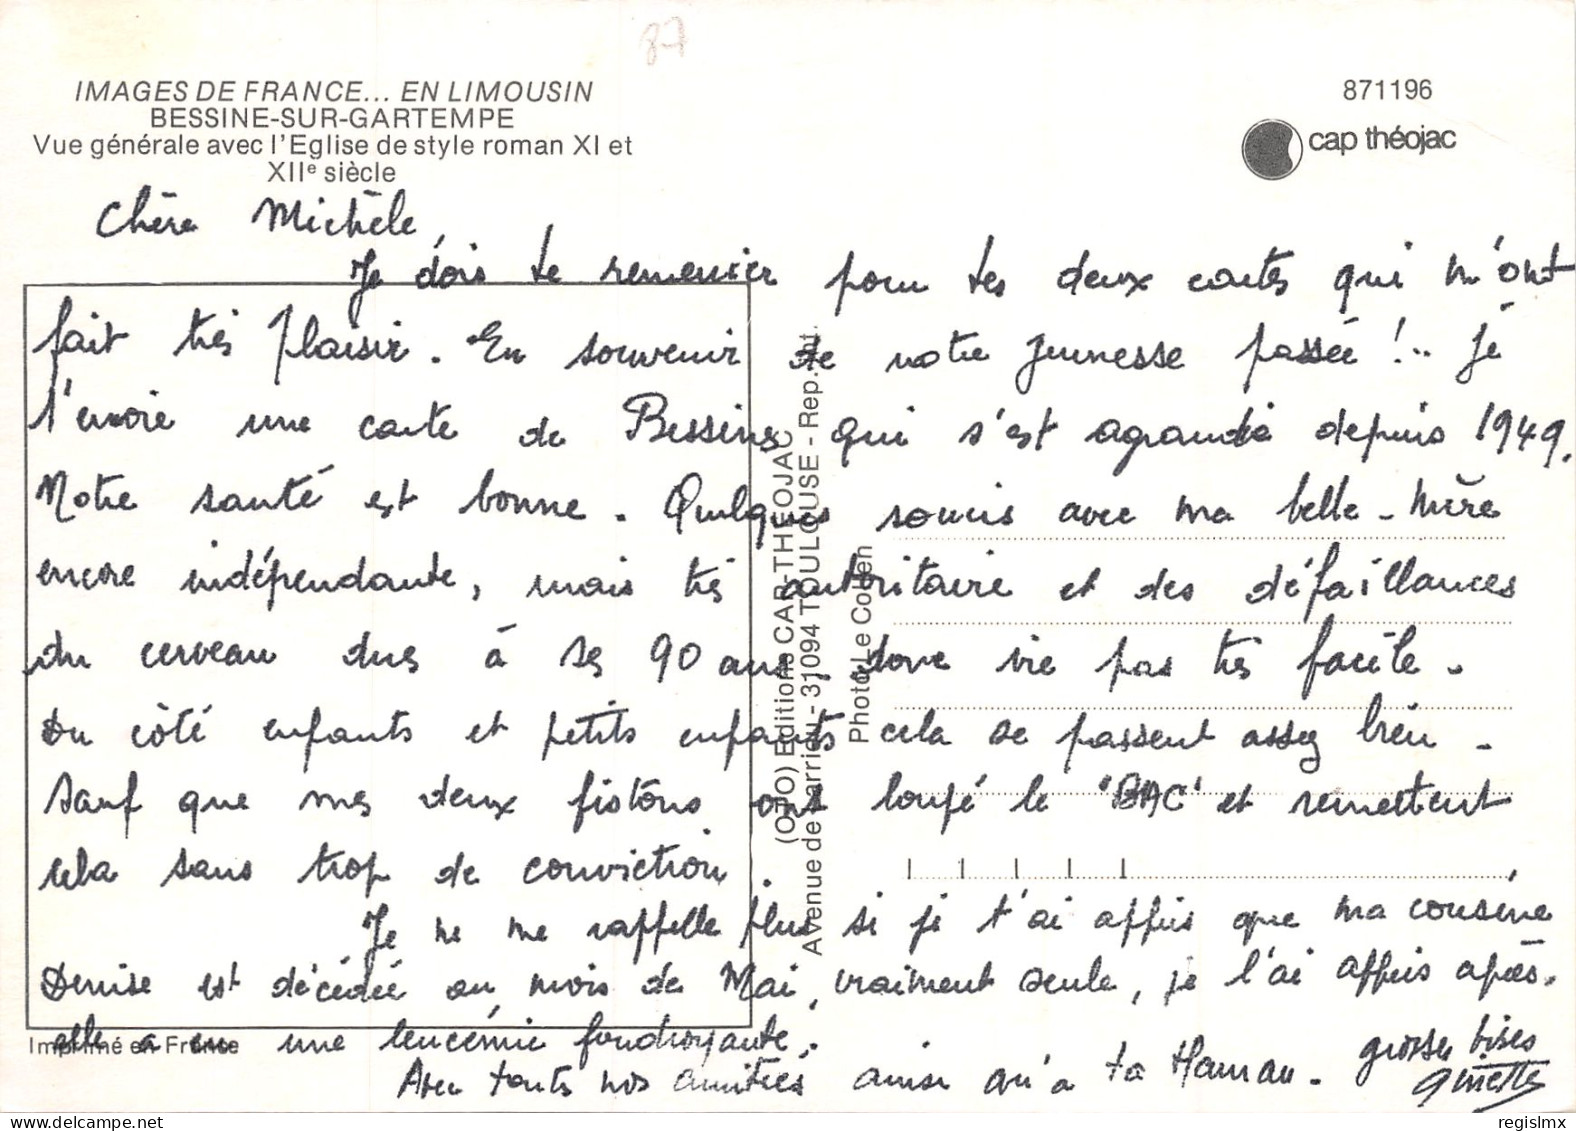 87
IMAGES DE FRANCE... EN LIMOUSIN
BESSINE-SUR-GARTEMPE
Vue générale avec l'Eglise de style roman XI et
XIIe siècle
871196
cap théojac
Chère Michèle,
Je dois te remercier pour tes deux cartes qui m'ont
fait très plaisir. En souvenir de notre jeunesse passée !.. je
t'envoie une carte de Bessines qui s'est agrandie depuis 1949.
Notre santé est bonne. Quelques soucis avec ma belle-mère
encore indépendante, mais très autoritaire et des défaillances
du cerveau dues à ses 90 ans, donc vie pas très facile.
Du côté enfants et petits enfants cela se passent assez bien.
Sauf que mes deux fistons ont loupé le "BAC" et remettent
cela sans trop de conviction.
Je ne me rappelle plus si je t'ai appris que ma cousine
Denise est décédée au mois de Mai, vraiment seule, je l'ai appris après,
elle a eu une leucémie foudroyante.
Avec toutes nos amitiés ainsi qu'a ta Maman. grosses bises
Ginette
(OJO) Editions CAP-THEOJAC
Avenue de Larrieu - 31094 TOULOUSE - Rep. int.
Photo Le Collen
Imprimé en France
regislmx